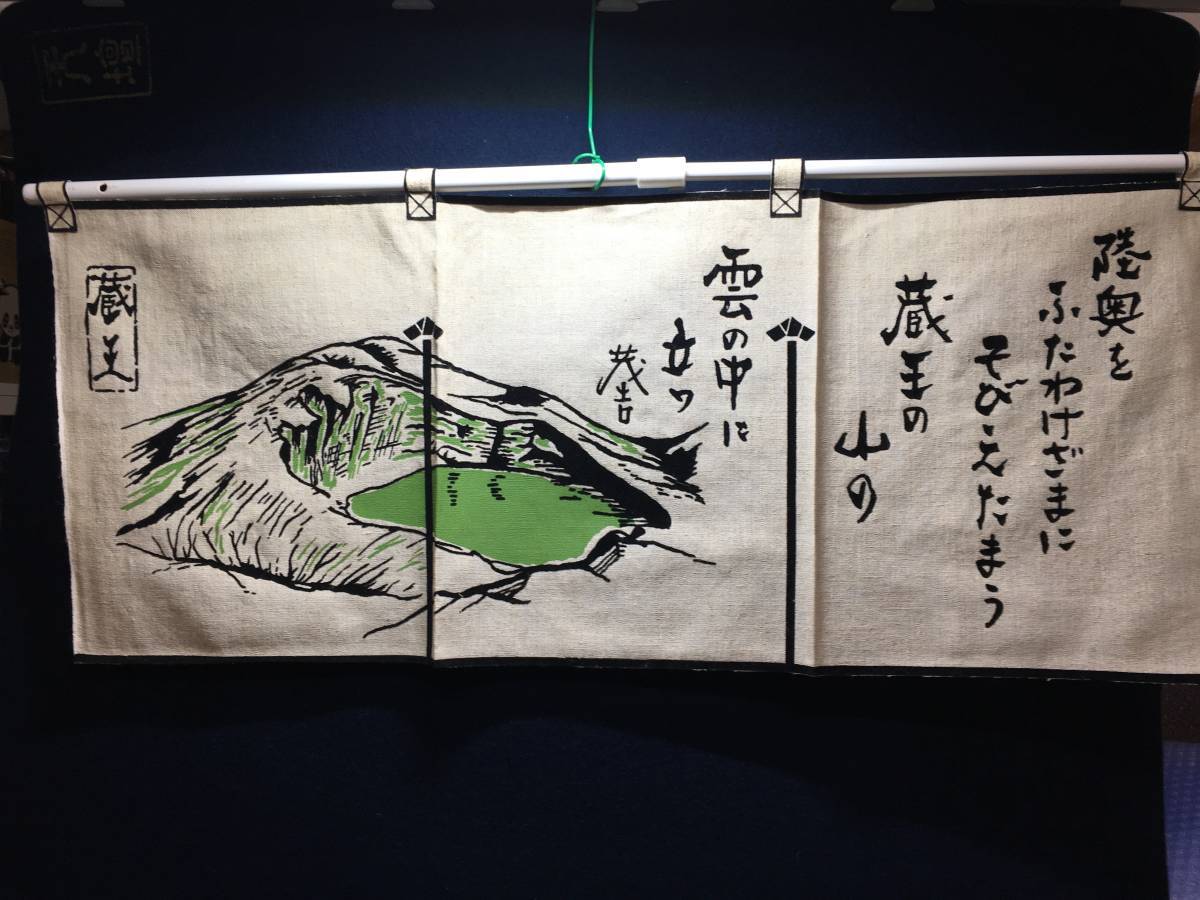 陸奥を
ふたわけざまに
そびえたまう
蔵王の
山の
雲の中に
立つ
茂吉
蔵王